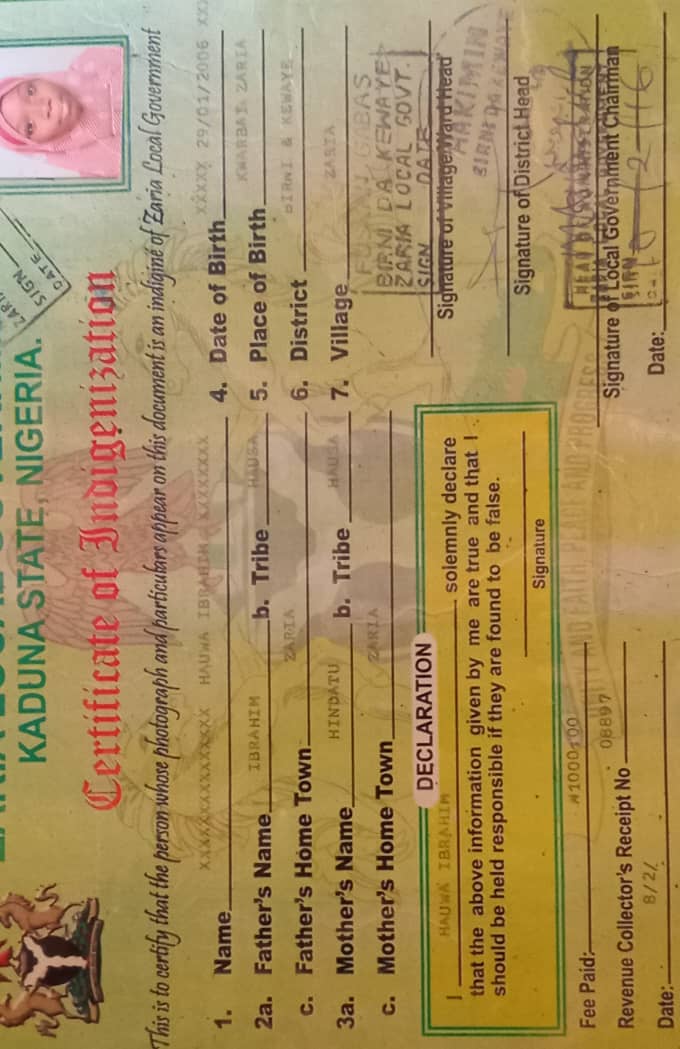 KADUNA STATE, NIGERIA.
Certificate of Indigenization
This is to certify that the person whose photograph and particulars appear on this document is an indigine of Zaria Local Government
1. Name XXXXXXXXXXXXXXX HAUWA IBRAHIM XXXXXXXXX
2a. Father's Name IBRAHIM b. Tribe HAUSA
c. Father's Home Town ZARIA
3a. Mother's Name HINDATU b. Tribe HAUSA
c. Mother's Home Town ZARIA
4. Date of Birth XXXXX 29/01/2006 XXX
5. Place of Birth KWARBAI ZARIA
6. District BIRNI & KEWAYE
7. Village ZARIA
ZARIA
SIGN
DATE
DECLARATION
I HAUWA IBRAHIM solemnly declare
that the above information given by me are true and that I
should be held responsible if they are found to be false.
Signature
GABAS
BIRNI DA KEWAYE
ZARIA LOCAL GOVT.
SIGN DATE
Signature of Village/Ward Head
HAKIMIN
BIRNI DA KEWAYE
Signature of District Head
HEAD OF ADMINISTRATION
SIGN
Signature of Local Government Chairman
Date:
AND FAITH, PEACE AND PROGRESS
Fee Paid: #1000:00
Revenue Collector's Receipt No 08897
Date: 8/2/